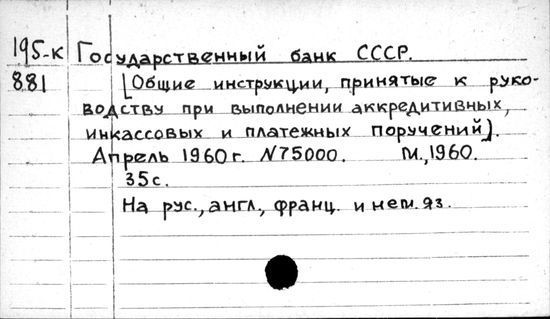 195-к Государственный банк СССР.
881 [Общие инструкции, принятые к руко-
водству при выполнении аккредитивных,
инкассовых и платежных поручений].
Апрель 1960 г. N75000. М., 1960.
35 с.
На рус., англ., франц. и нем. яз.